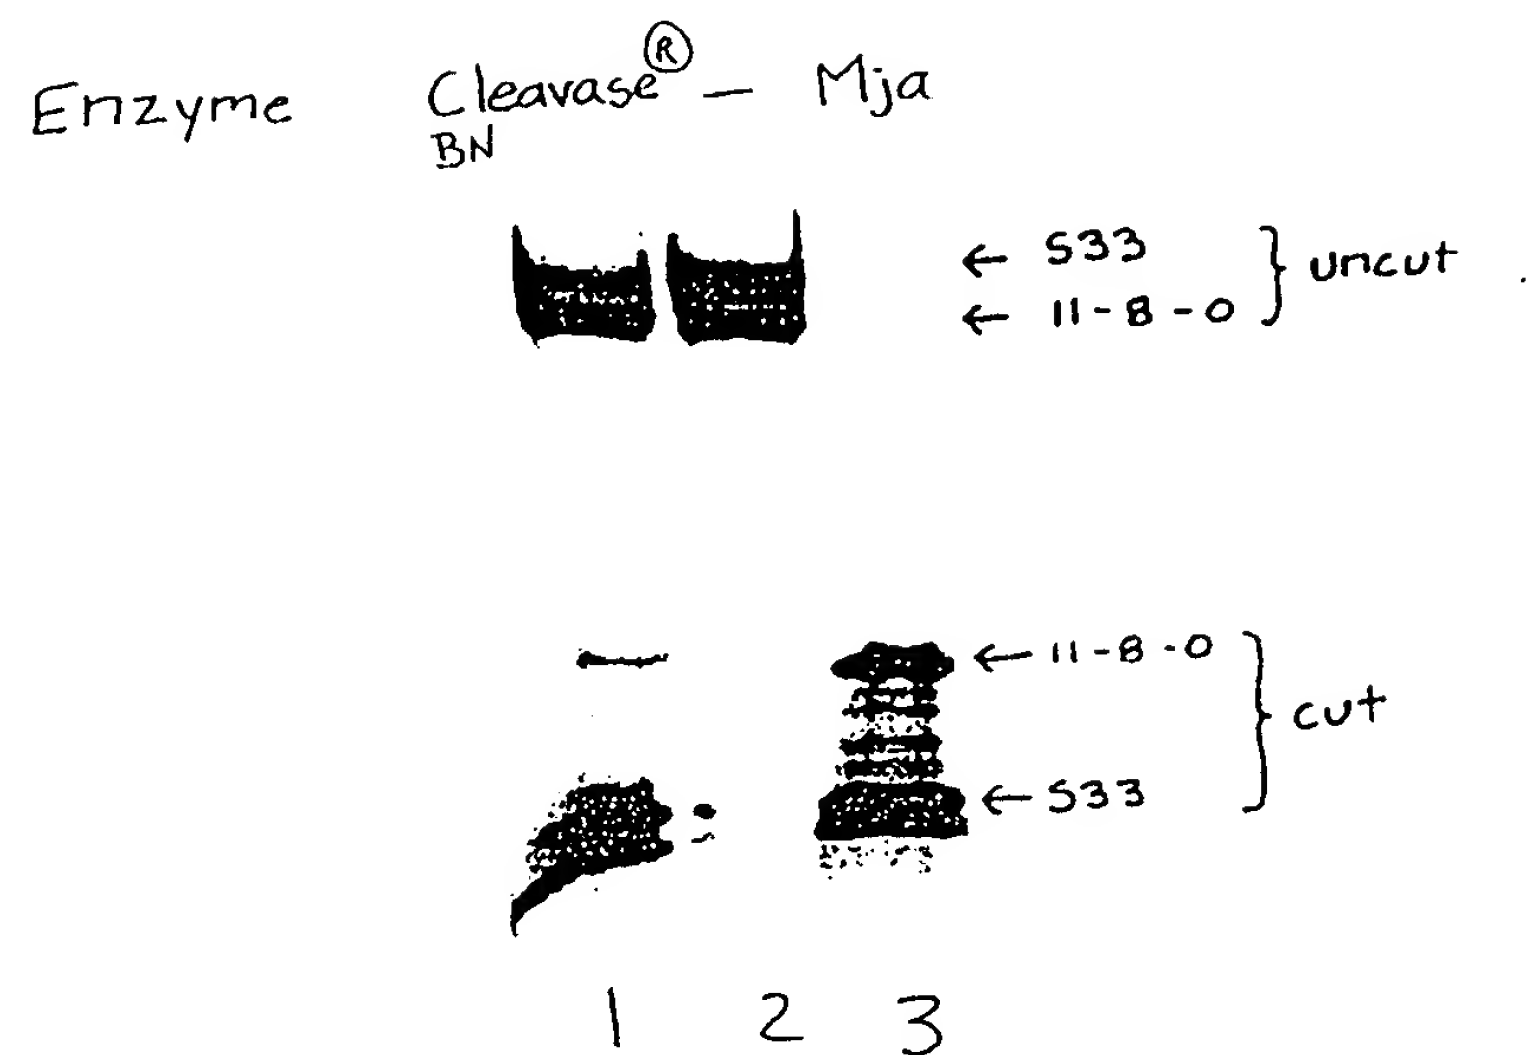 Enzyme Cleavase® — Mja
BN
← S33
← 11-8-0
} uncut
← 11-8-0
← S33
} cut
1 2 3